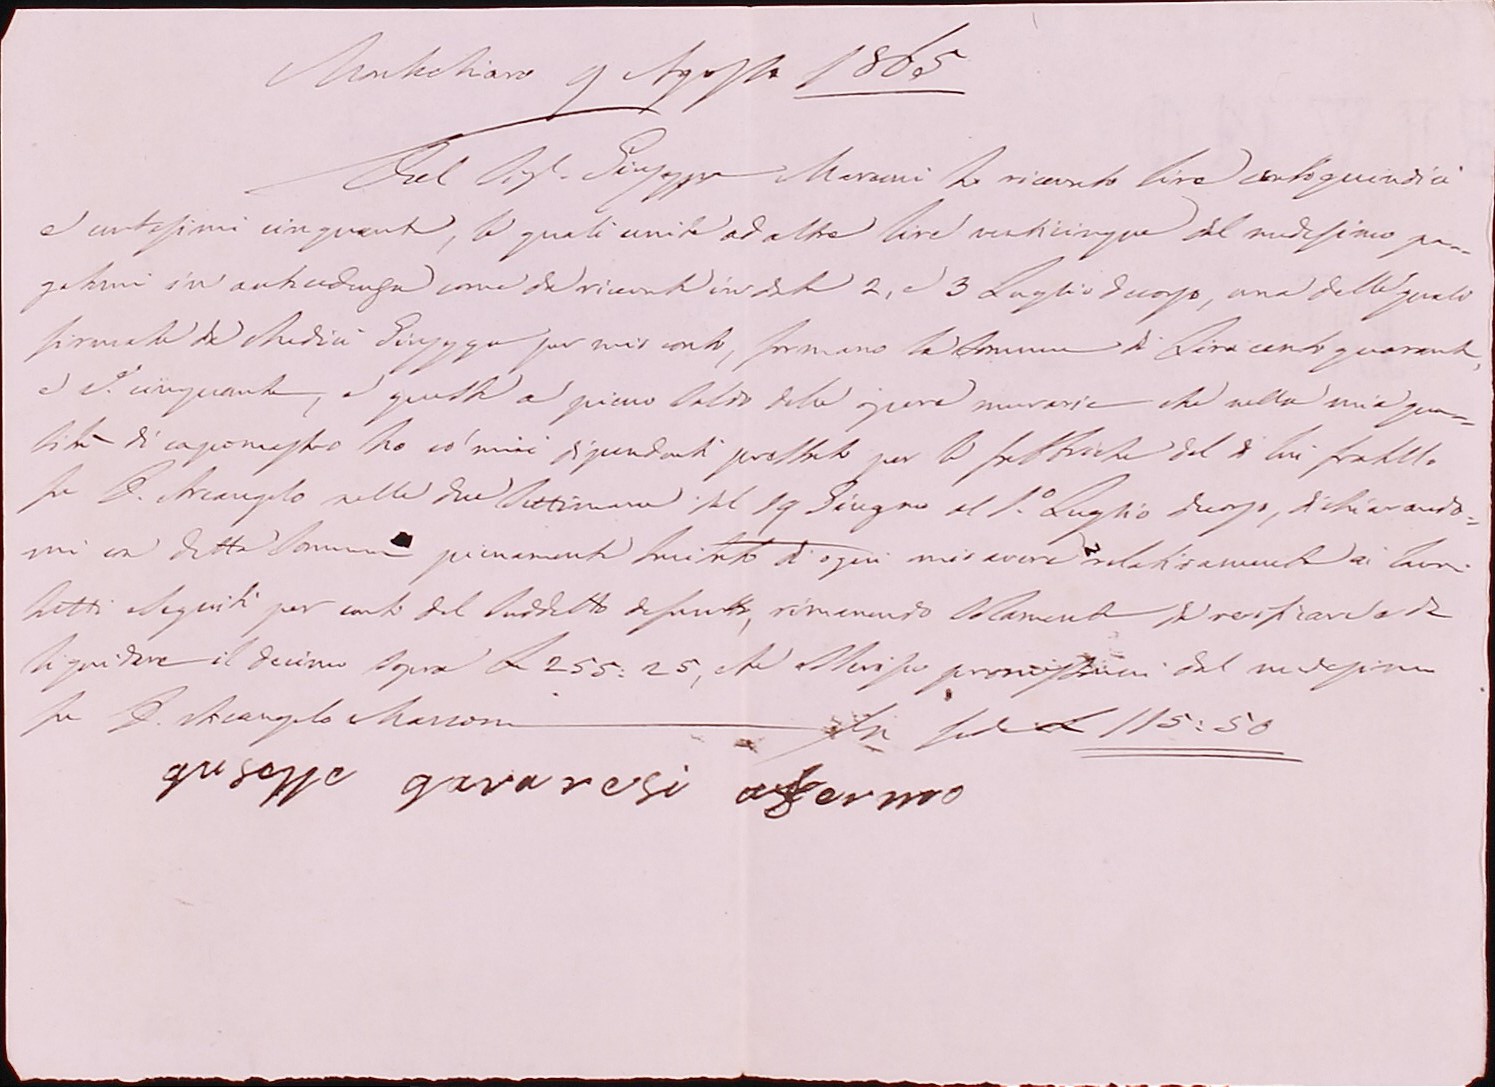 Montechiaro 9 Agosto 1865
Dal Sig.r Giuseppe Marconi ho ricevuto lire centoquindici
e centesimi cinquanta, le quali unite ad altre lire venticinque dal medesimo pa=
gatemi in antecedenza come da ricevute in data 2, e 3 Luglio decorso, una delle quali
firmata da Medici Giuseppe per mio conto, formano la somma di Lire cento quaranta,
e c.i cinquanta, e queste a pieno saldo delle opere murarie che nella mia qua=
lità di capomastro ho co' miei dipendenti prestato per le fabbriche del di lui fratello
fu D. Arcangelo nelle due settimane dal 19 Giugno al 1.o Luglio decorso, dichiarando=
mi con detta somma pienamente tacitato di ogni mio avere relativamente ai lavori
tutti eseguiti per conto del suddetto defunto, rimanendo solamente da verificare e da
liquidare il decimo sopra L 255:25, che promessomi dal medesimo
fu D. Arcangelo Marconi In fede L 115:50
giuseppe gavaresi afermo